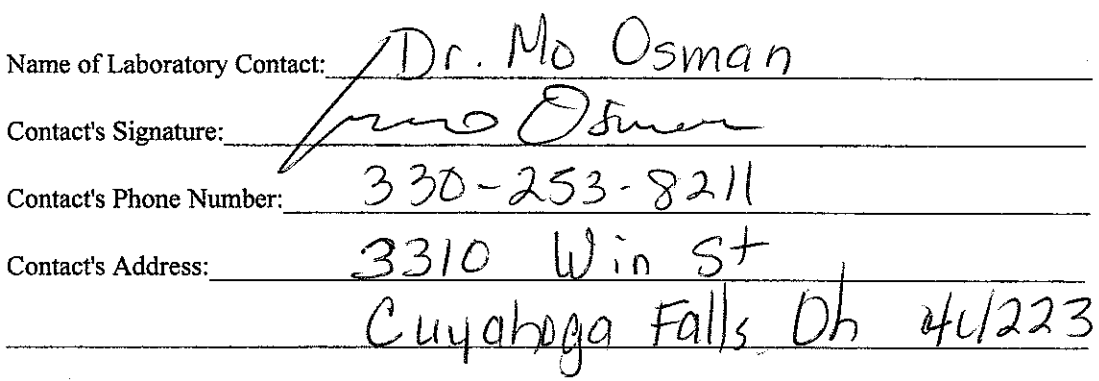 Name of Laboratory Contact: Dr. Mo Osman
Contact's Signature: Mo Osman
Contact's Phone Number: 330-253-8211
Contact's Address: 3310 Win St
Cuyahoga Falls Oh 44223